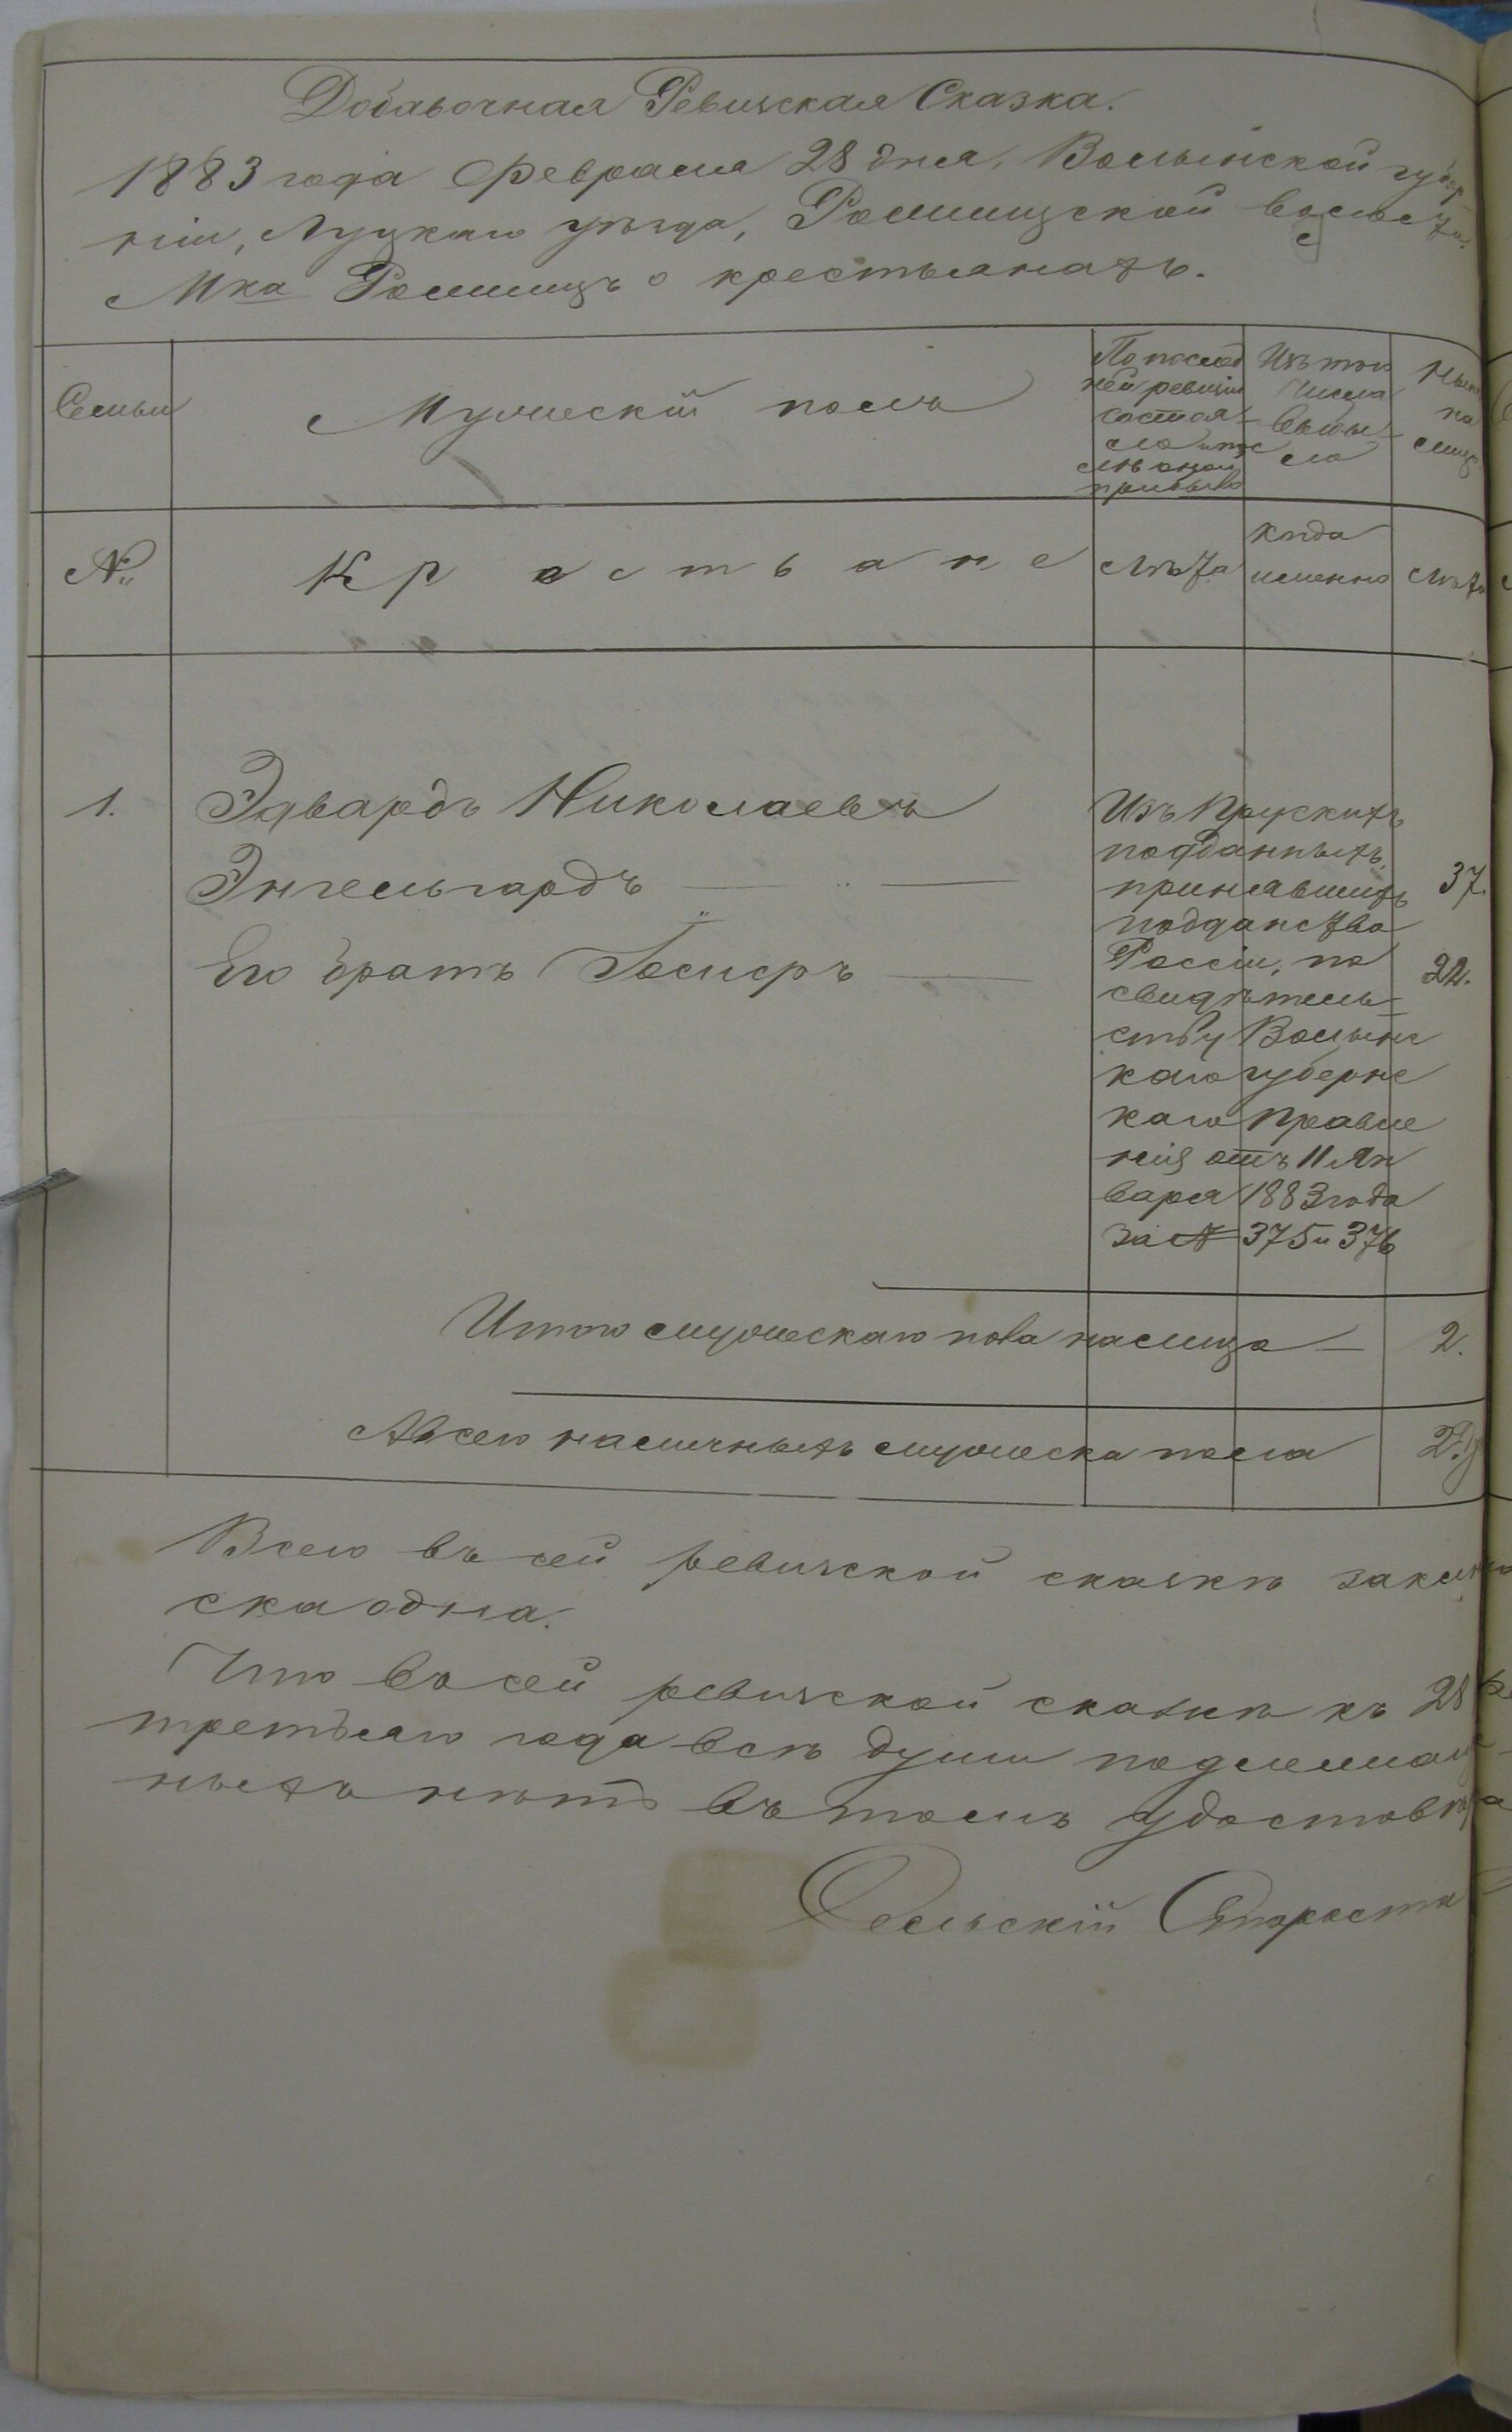 Добавочная Ревизская Сказка.
1883 года Февраля 28 дня, Волынской губер
ніи, Луцкаго уѣзда, Рожищской волости
Мка Рожищъ о крестьянахъ.
Семьи
Мужескій полъ
По послѣд
ней ревизіи
состоя-
ло и пос
лѣ оной
прибыло
Изъ того
числа
выбы-
ло
Нынѣ
на
лицо
№
Крестьяне
Лѣта
когда
именно
Лѣта
1.
Эдвардъ Николаевъ
Энгельгардъ
37.
Его братъ
22.
Изъ Прускихъ
подданныхъ,
принявшихъ
подданство
Россіи, по
свидѣтель-
ству Волынс
каго губернс
каго Правле
нія отъ 11 Ян
варя 1883 года
за № 375 и 376
Итого мужескаго пола налицо — 2.
А всего наличныхъ мужеска пола 2.
Всего въ сей ревизской сказкѣ
одна.
Что въ сей ревизской сказкѣ къ 28
третьяго года всѣ души
ныхъ нѣтъ въ томъ
Сельскій Староста